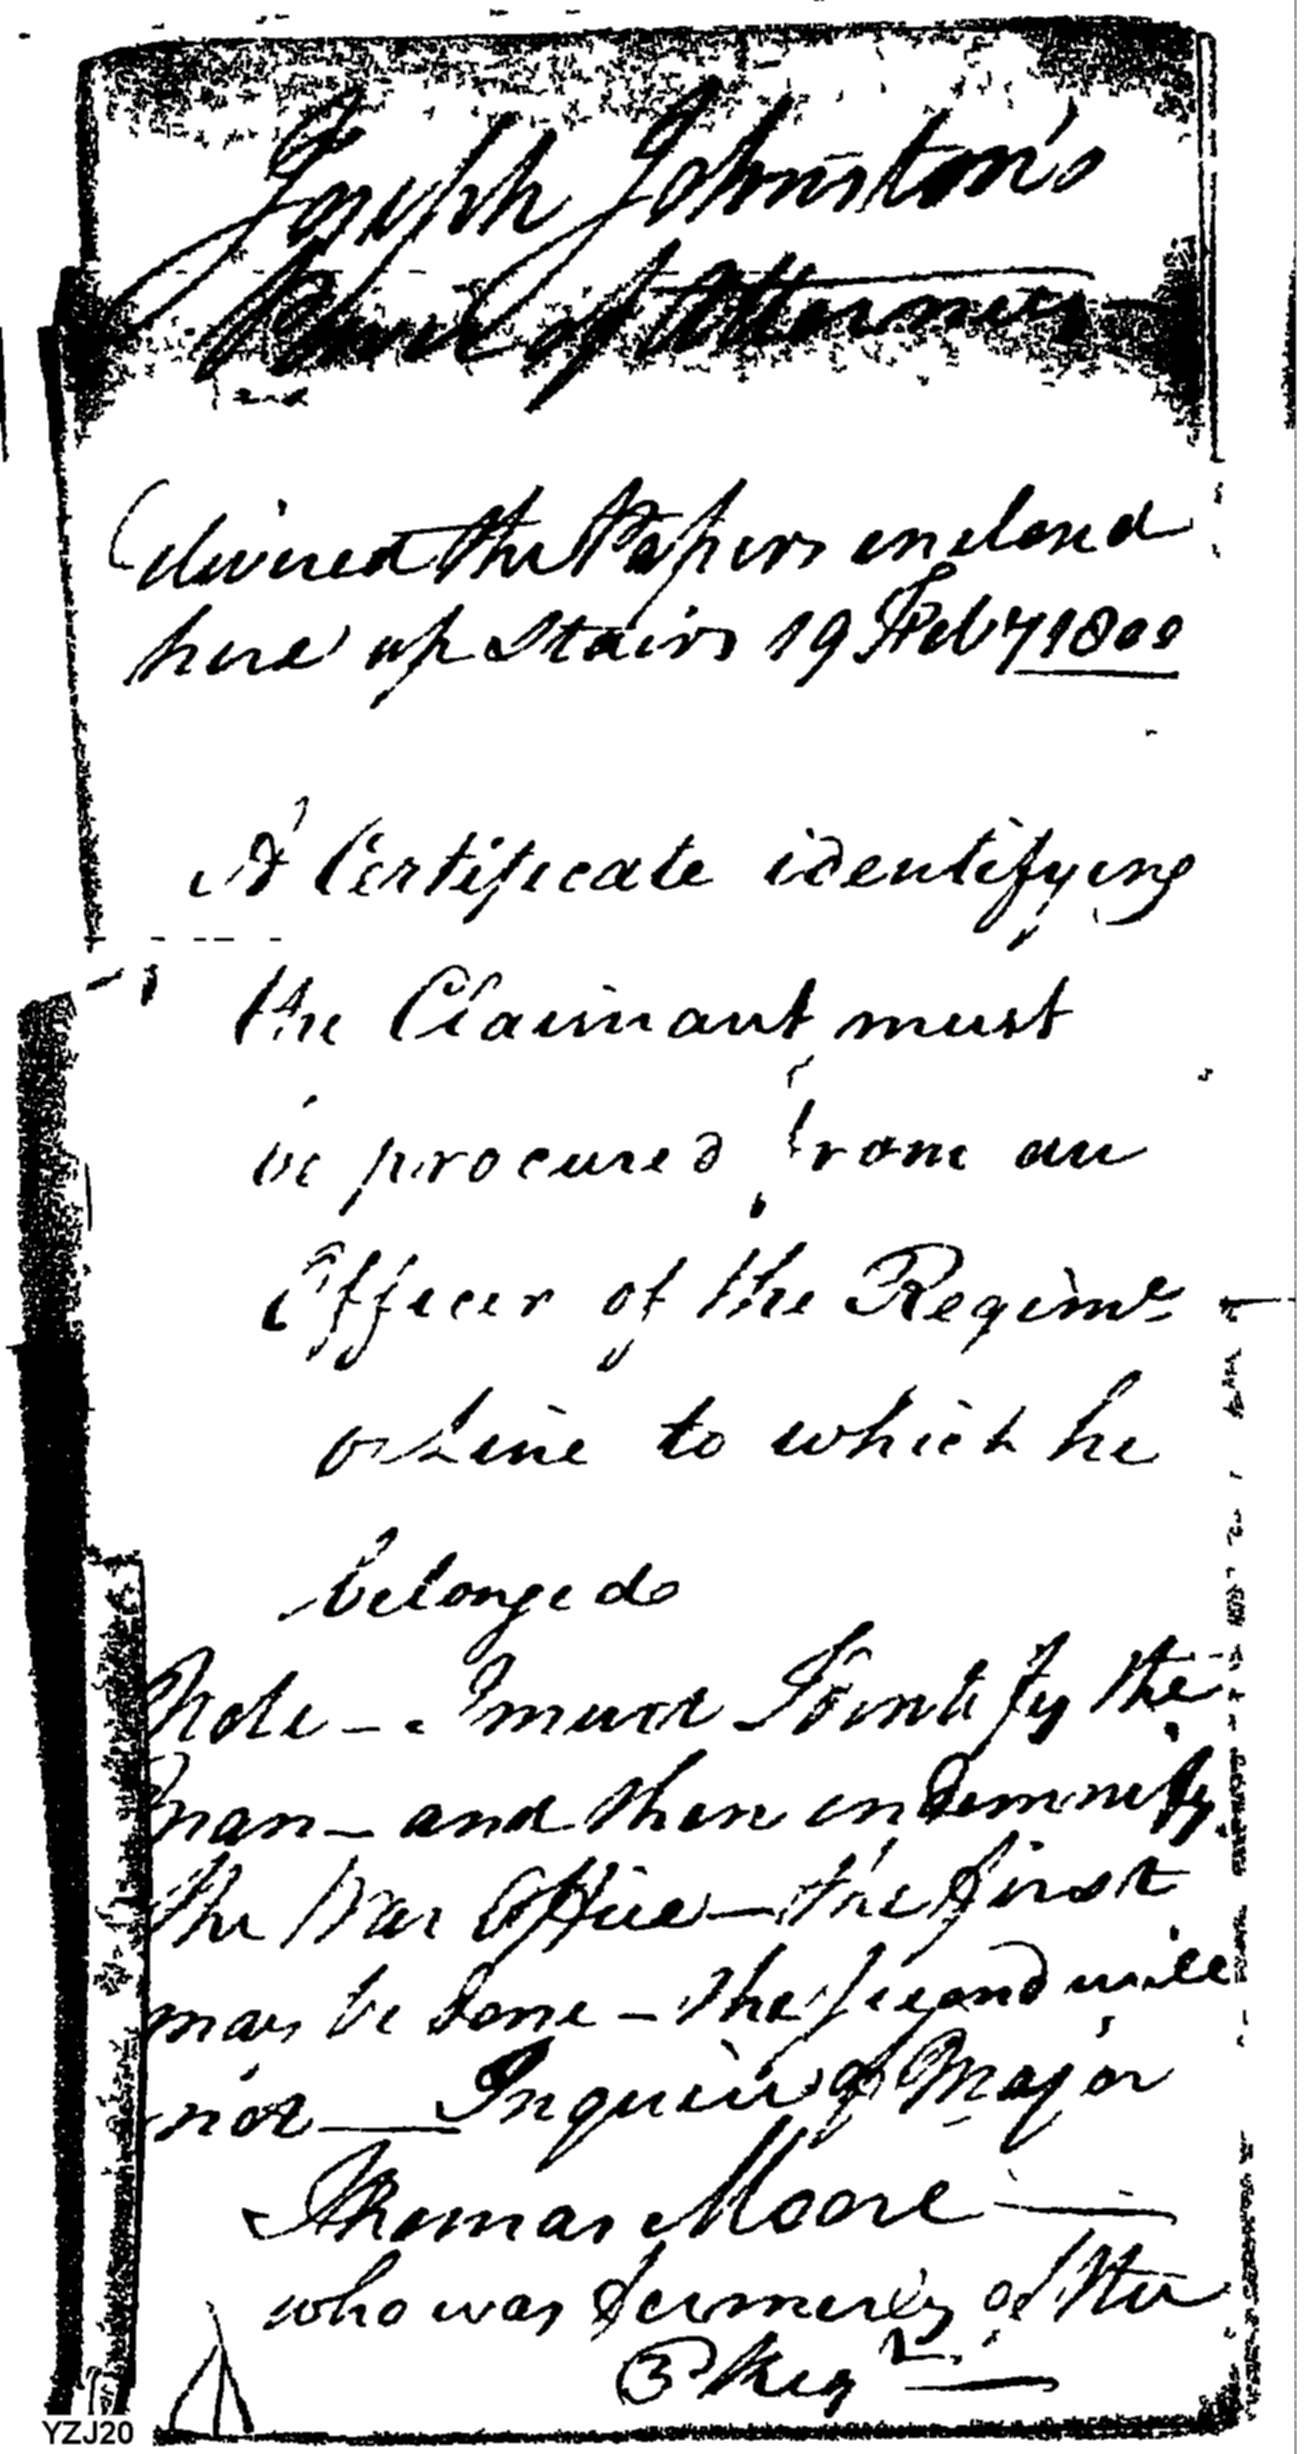 Joseph Johnston's
Power of Attorney
delivered the Papers enclosed
here up Stairs 19 Feby 1800
A Certificate identifying
the Claimant must
be procured from an
Officer of the Regimt
or Line to which he
belonged
Note - I must Identify the
man - and then indemnify
the War Office - the first
may be done - the second will
not - Inquire of Major
Thomas Moore
who was formerly of the
3d Regt
YZJ20